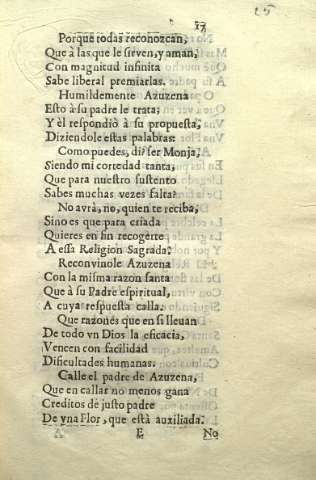 17
25
Porque todas reconozcan,
Que à las que le sirven, y aman,
Con magnitud infinita
Sabe liberal premiarlas.
Humildemente Azuzena
Esto à su padre le trata;
Y èl respondiò à su propuesta,
Diziendole estas palabras:
Como puedes, di, ser Monja,
Siendo mi cortedad tanta,
Que para nuestro sustento
Sabes muchas vezes falta?
No avrà, no, quien te reciba,
Sino es que para criada
Quieres en fin recogerte
A essa Religion Sagrada.
Reconvinole Azuzena
Con la misma razon santa
Que à su Padre espiritual,
A cuya respuesta calla.
Que razones que en si llevan
De todo vn Dios la eficacia,
Vencen con facilidad
Dificultades humanas.
Calle el padre de Azuzena,
Que en callar no menos gana
Creditos de justo padre
De vna Flor, que està auxiliada.
E
No